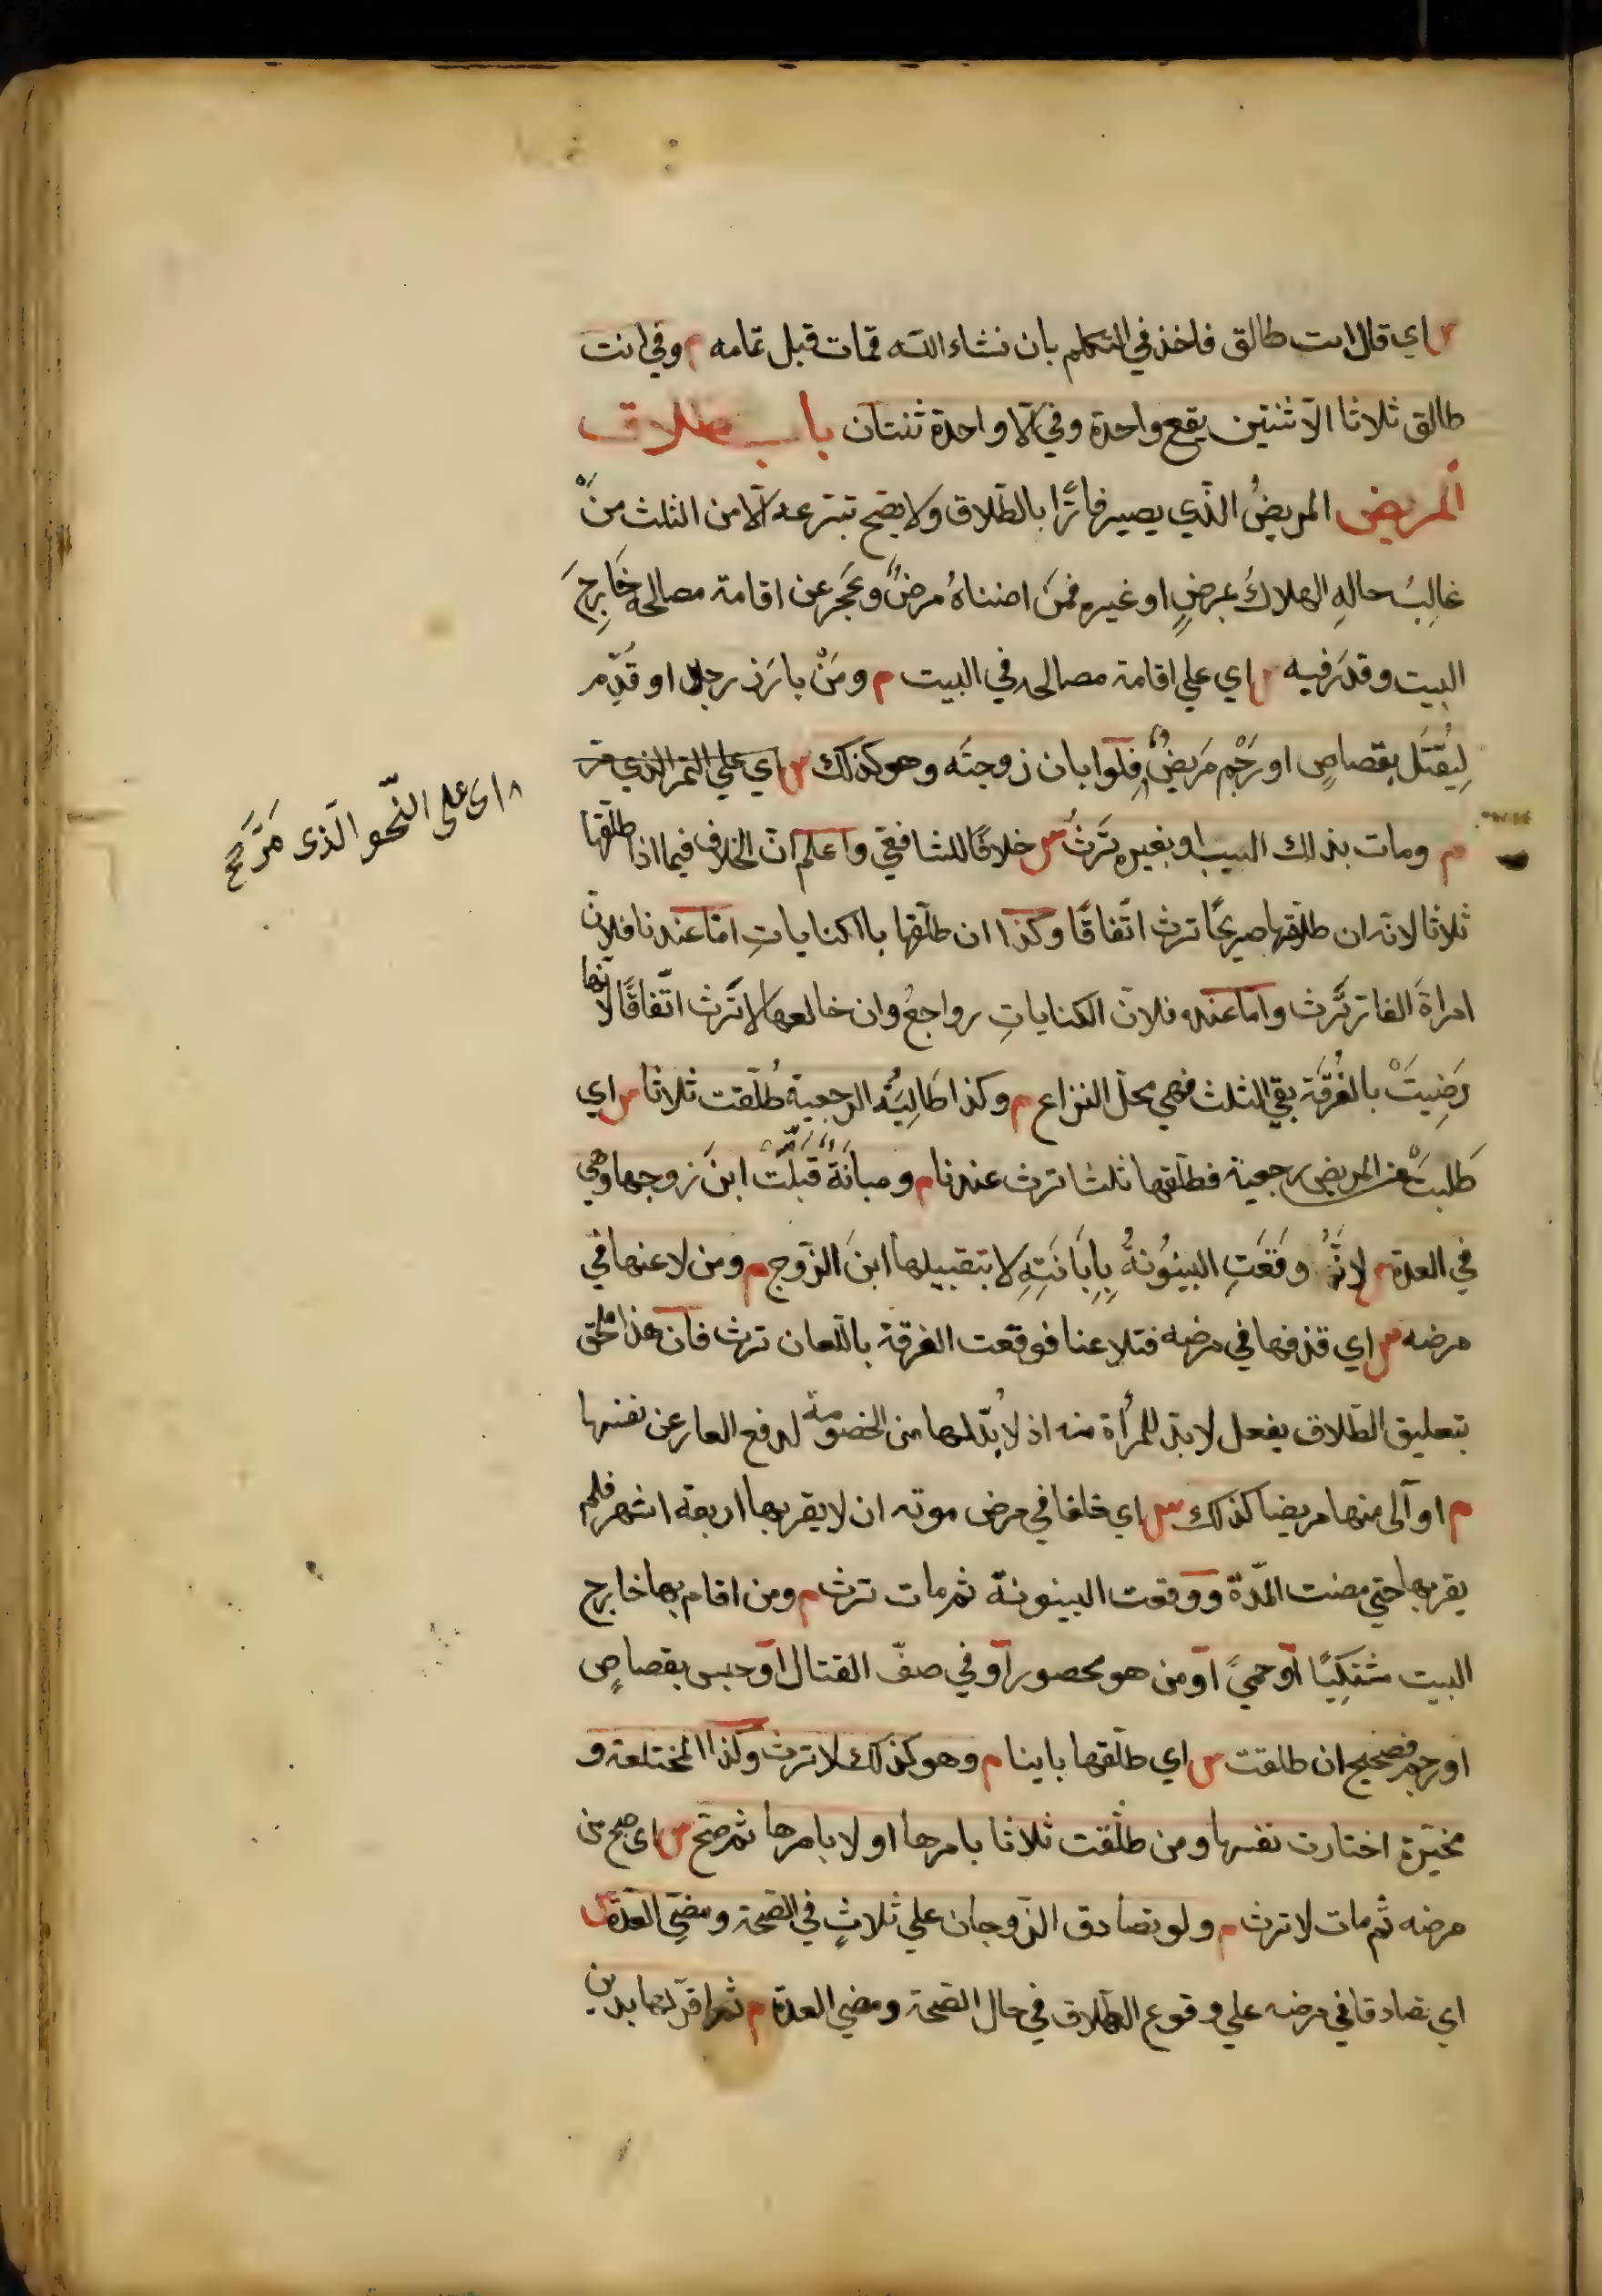 س اي قال انت طالق فاخذ في التكلم بان نشاء الله فمات قبل تمامه م وفي انت
طالق ثلاثا الا ثنتين يقع واحدة وفي الا واحدة ثنتان باب طلاق
المريض المريضُ الذي يصير فارًّا بالطّلاق ولا يصح تبرعه الّا من الثلث منْ
غالِبُ حالهِ الهلاكُ بمرضٍ او غيره فمَن اضناهُ مرضٌ وعَجَز عن اقامة مصالحه خَارِجَ
البيت وقدَرَ فيه س اي علي اقامة مصالحه في البيت م ومَنْ بارَزَ رجلا او قُدّم
لِيُقتَل بقصاصٍ او رَجْمٍ مَريضٌ فلو ابان زوجتَه وهو كذلك س اي علي النحو الذي مر
م ومات بذلك السبب او بغيره تَرثُ س خلافًا للشافعي واعلم ان الخلاف فيما اذا طلّقها
ثلاثا لانه ان طلّقها صريحًا ترث اتّفاقًا وكذا ان طلّقها بالكناياتِ امّا عندنا فلان
امراةَ الفار تَرِث واما عنده فلان الكناياتِ رواجعُ وان خالعها لا تَرث اتّفاقًا لانّها
رَضِيَتْ بالفُرقَة بقي الثلث فهي محلّ النزاع م وكذا طَالِبَةُ الرجعية طُلّقت ثلاثا س اي
طَلبَتْ من المريض رجعية فطلّقها ثلثا ترث عندنا م ومبانَةٌ قَبَّلَت ابنَ زوجها وهي
في العدة س لانّهُ وقَعَتِ البينُونةُ بِإِبَانَتِهِ لا بتقبيلها ابنَ الزّوج م ومن لاعنها في
مرضه س اي قذفها في مرضه فتلاعنا فوقعت الفرقة باللّعان ترث فان هذا ملحق
بتعليق الطّلاق بفعل لا بدّ للمرأة منه اذ لا بُدّ لها من الخصومة لدفع العار عن نفسها
م او آلى منها مريضا كذلك س اي حلفا في مرض موته ان لا يقربها اربعة اشهر فلم
يقربها حتي مضت المدّة ووقعت البينونة ثم مات ترث م ومن اقام بها خارج
البيت مشتكِيًا او حمىً او من هو محصور او في صفّ القتال او حبس بقصاصٍ
او رجم فصحيح ان طلقت س اي طلّقها باينا م وهو كذلك لا ترث وكذا المختلعة و
مخيّرة اختارت نفسها ومن طلّقت ثلاثا بامرها او لا بامرها ثم صحّ س اي صح من
مرضه ثم مات لا ترث م ولو تصادق الزّوجان علي ثلاثٍ في الصّحة ومضيّ العدّة س
اي تصادقا في مرضه علي وقوع الطّلاق في حال الصّحة ومضي العدة م ثم اقرّ لها بدين
اى على النّحو الّذى مَرَّ صح